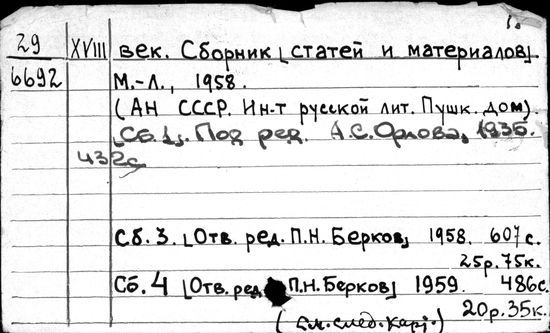 1.
29 XVIII век. Сборник [статей и материалов].
6692 М.-Л., 1958.
(АН СССР. Ин-т русской лит. Пушк. дом).
[Сб. 1]. Под ред. А.С. Орлова, 1935.
432с
Сб. 3. [Отв. ред. П.Н. Берков] 1958. 607 с.
25р.75к.
Сб. 4 [Отв. ред. П.Н. Берков] 1959. 486с.
20р.35к.
(см. след. карт.)